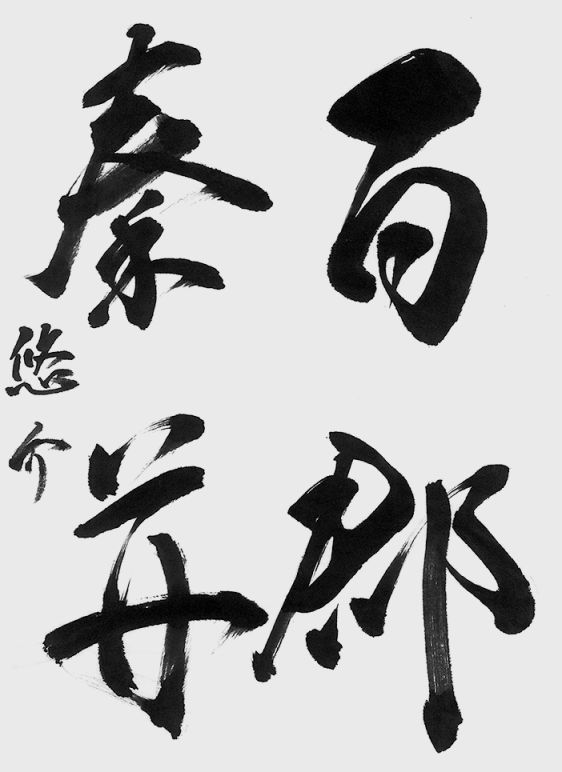 百郡
秦并
悠介